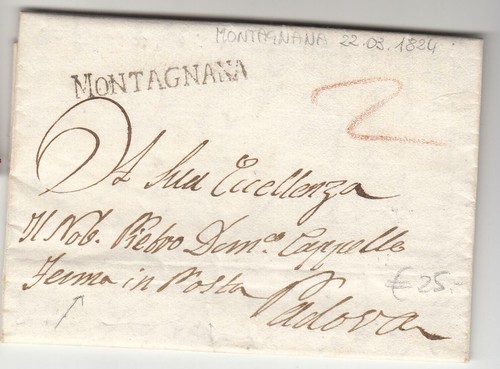 MONTAGNANA 22.03.1824
MONTAGNANA
2
A Sua Eccellenza
Il Nob. Pietro Dom.co Cappello
Ferma in Posta
€ 25.-
Padova